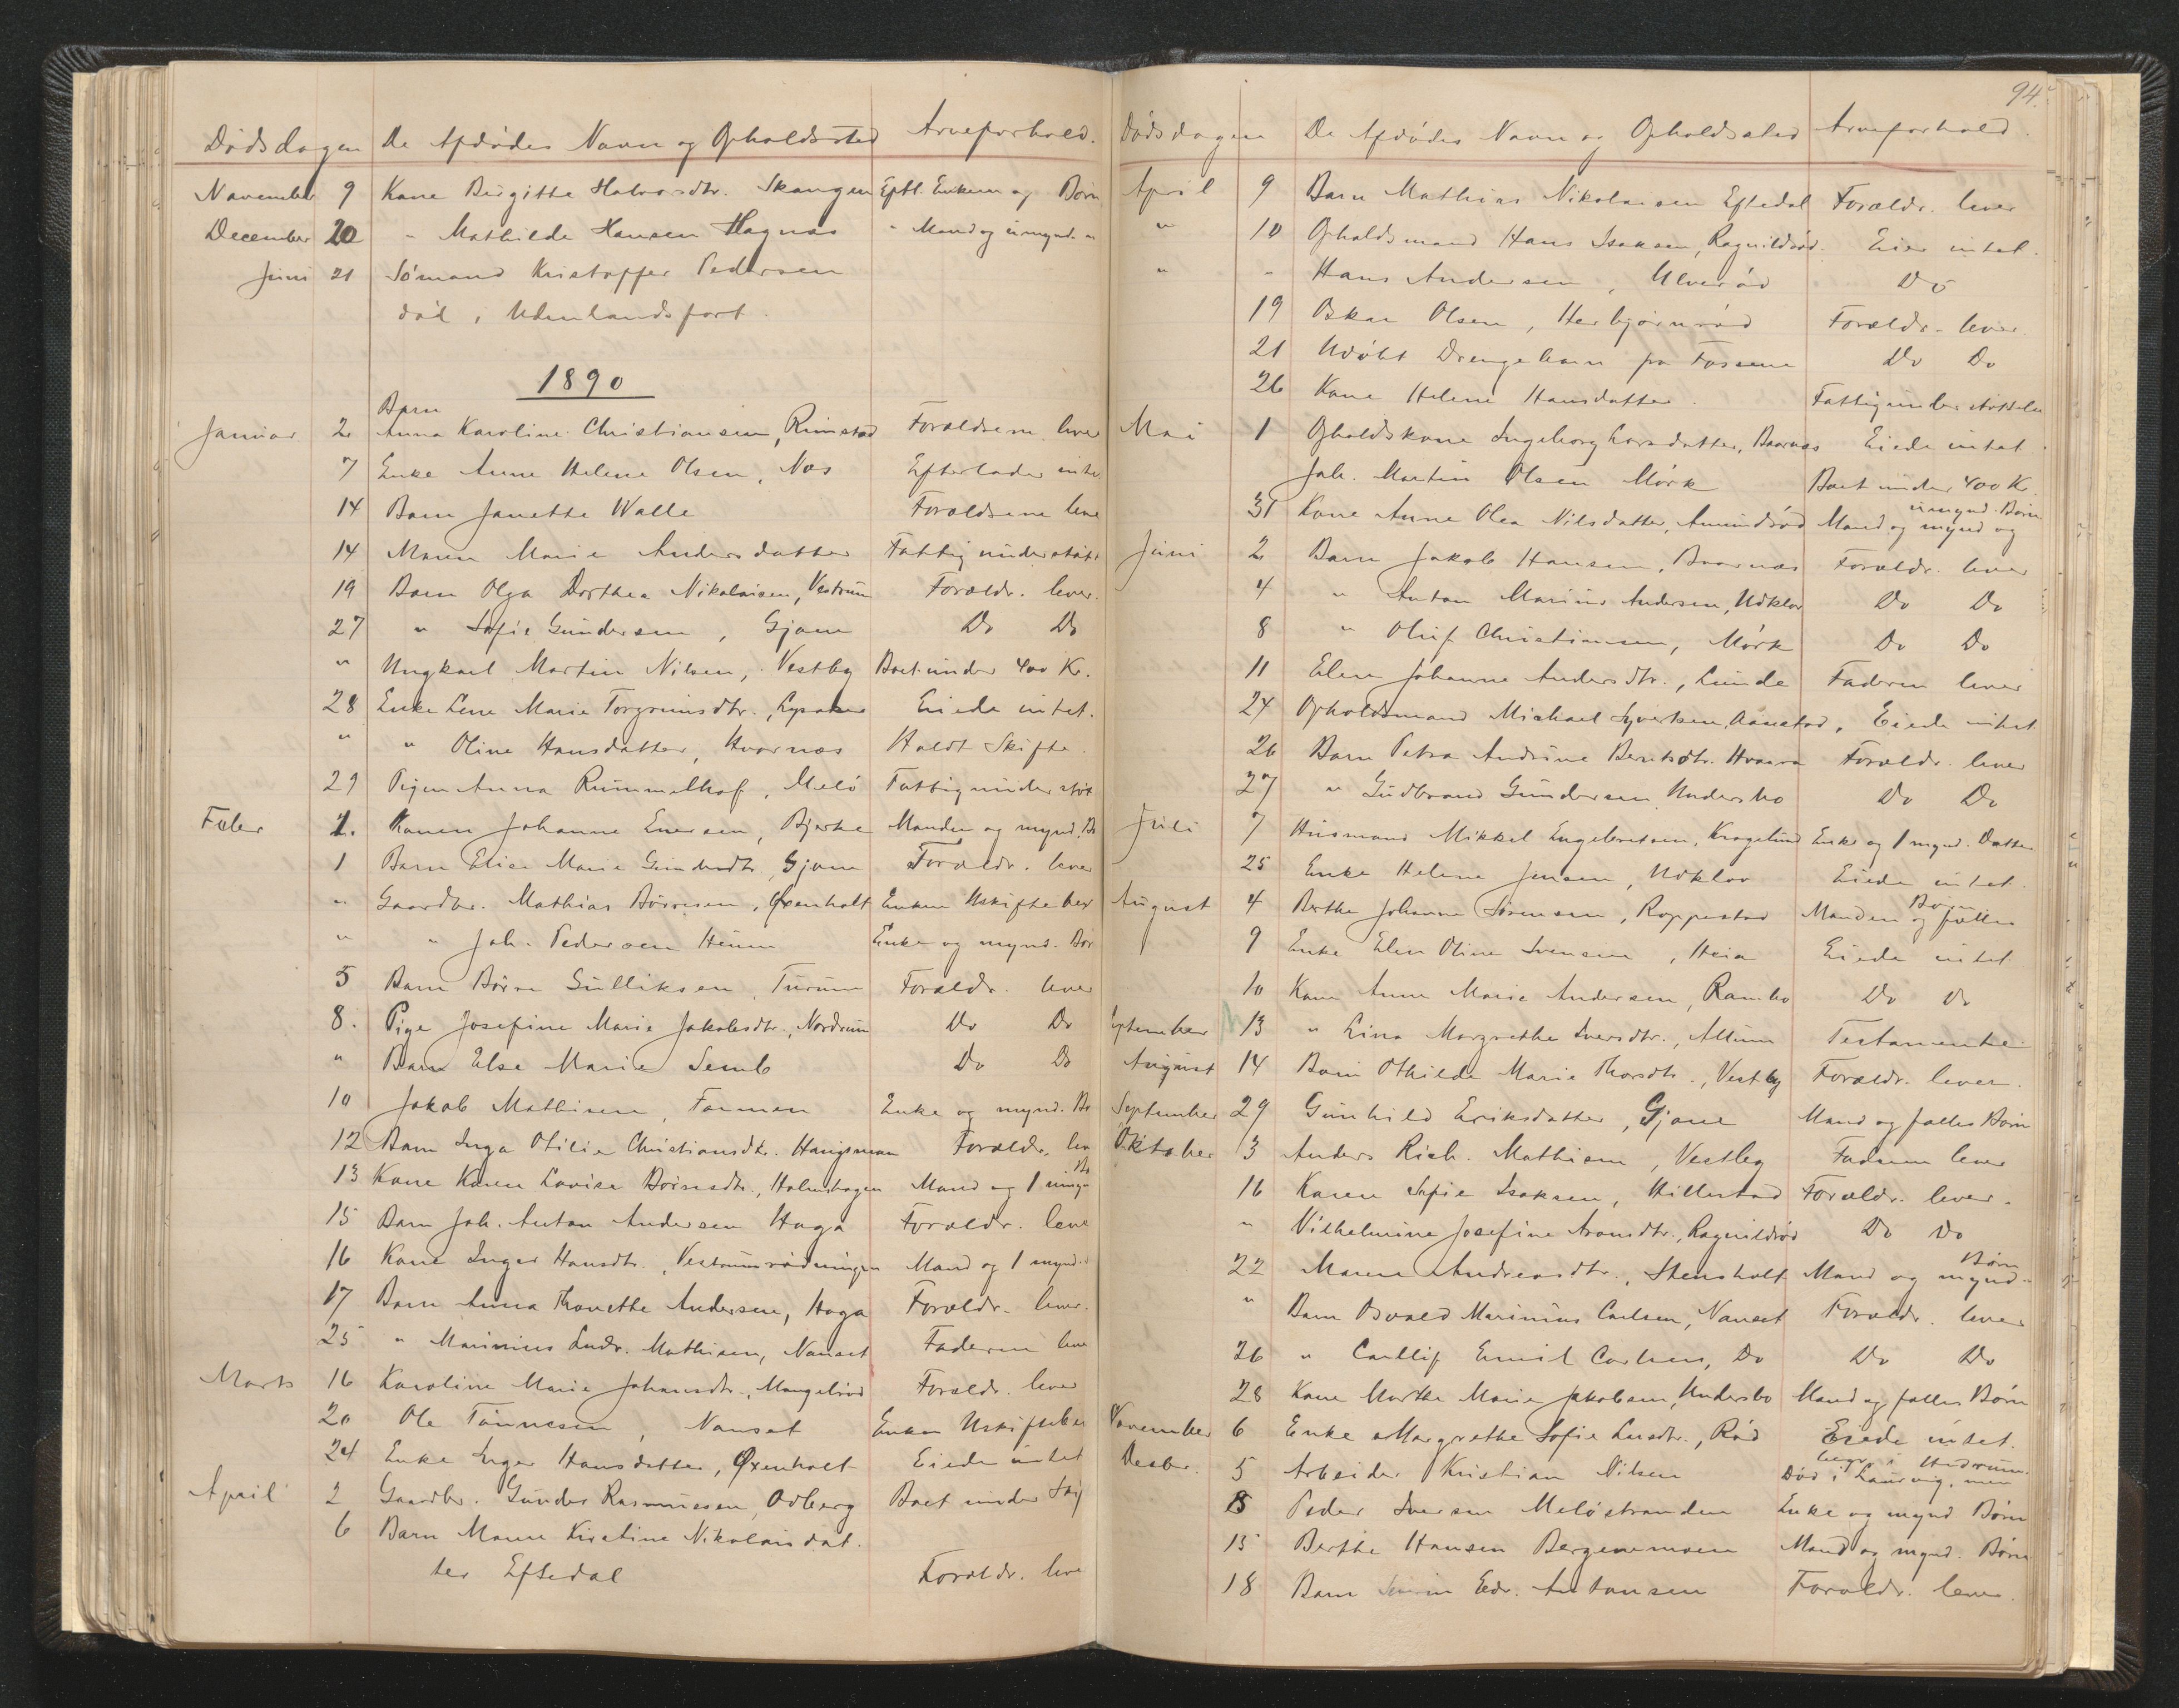 Dödsdagen De Afdødes Navn og Opholdssted Arveforhold.
November 9 Kone Birgitte Halvorsdtr. Skaugen Eftl. Enkem og Börn
December 20 " Mathilde Hansen Hagnæs " Mand og umynd. "
Juni 21 Sömand Kristoffer Pedersen
död i Udenlandsfart.
1890
Barn
Januar 2 Anna Karoline Christiansen, Rimstad Forældrene lever
7 Enke Anne Helene Olsen, Næs Efterlader intet
14 Barn Janette Walle Forældrene leve
14 Maren Marie Andersdatter Fattigunderstøt
19 Barn Olga Dorthea Nikolaisen, Vestrum Forældr. lever.
27 " Sofie Gundersen, Gjone Do Do
" Ungkarl Martin Nilsen, Vestby Boet under 400 Kr.
28 Enke Lene Marie Torgrimsdtr., Lysaker Eiede intet.
" " Oline Hansdatter, Hvarnes Holdt Skifte.
29 Pigen Anna Rummelhof, Melö Fattigunderstøt
Feber 1. Konen Johanne Enersen, Bjerke Manden og mynd. B
1 Barn Elise Marie Gundersdtr, Gjone Forældr. lever
" Gaardbr. Mathias Börresen, Øxenholt Enken Uskiftebev
" " Joh. Pedersen Heum Enke og mynd. Bör
5 Barn Börre Gulliksen, Turum Forældr. lever
8. Pige Josefine Marie Jakobsdtr., Nordrum Do Do
" Barn Else Marie Semb Do Do
10 Jakob Mathisen, Farmen Enke og mynd. Bö
12 Barn Inga Otilie Christiansdtr. Haugsman Forældr. lev
13 Kone Karen Lovise Börresdtr., Holmskogen Mand og 1 umyn Bö
15 Barn Joh. Anton Andersen Haga Forældr. leve
16 Kone Inger Hansdtr., Vestrumrødningen Mand og 1 mynd.
17 Barn Anna Thonette Andersen, Haga Forældr. lever.
25 " Marinius Ludv. Mathisen, Nanset Faderen leve
Marts 16 Karoline Marie Johansdtr., Mangelröd Forældr. lever
20 Ole Tönnesen, Nanset Enken Uskiftebev
24 Enke Inger Hansdatter, Øxenholt Eiede intet
April 2 Gaardbr. Gunder Rasmussen, Odberg Boet under Skif
6 Barn Maren Kirstine Nikolaisdat.
ter Eftedal Forældr. leve
94.
Dödsdagen De Afdödes Navn og Opholdssted Arveforhold.
April 9 Barn Mathias Nikolaisen Eftedal Forældr. lever
" 10 Opholdsmand Hans Isaksen, Ragnildröd Eier intet.
" " Hans Andersen, Ulveröd Do
19 Oskar Olsen, Herbjörnröd Forældr. lever.
21 Udöbt Drengebarn fra Fossene Do Do
26 Kone Helene Hansdatter. Fattigunderstøttelse
Mai 1 Opholdskone Ingeborg Larsdatter, Baarnæs Eiede intet.
Joh. Martin Olsen Mörk Boet under 400 Kr.
umynd. Börn
31 Kone Anne Olea Nilsdatter, Amundröd Mand og mynd og
Juni 2 Barn Jakob Hansen, Baarnæs Forældr. lever
4 " Anton Marius Andersen, Udklev Do Do
8 " Oluf Christiansen, Mörk Do Do
11 Elen Johanne Andersdtr., Lunde Faderen lever
24 Opholdsmand Michael Syvertsen, Aanestad, Eiede intet
26 Barn Petra Andrine Berntsdtr. Hvaara Forældr. lever
27 " Gudbrand Gundersen Undersbo Do Do
Juli 7 Husmand Mikkel Engebretsen, Kragelund Enke og 1 mynd. Datter
25 Enke Helene Jensen, Udklev Eiede intet.
August 4 Berthe Johanne Sörensen, Roppestad Manden og fælles Börn
9 Enke Elen Oline Svensen, Heia Eiede intet
10 Kone Anne Marie Andersen, Rambo Do Do
September 13 " Lina Margrethe Iversdtr., Allum Testamente
August 14 Barn Othilde Marie Thorsdtr., Vestby Forældr. lever.
September 29 Gunhild Eriksdatter, Gjone Mand og fælles Börn
Oktober 3 Anders Rich. Mathisen, Vestby Faderen lever
16 Karen Sofie Isaksen, Hillestad Forældr. lever.
" Vilhelmine Josefine Aronsdtr., Ragnildröd Do Do
22 Maren Andreasdtr., Stensholt Mand og mynd. Börn
" Barn Osvald Marinius Carlsen, Nanset Forældr. lever
26 " Carllif Emil Carlsen, Do Do Do
28 Kone Marthe Marie Jakobsen, Undersbo Mand og fælles Börn
November 6 Enke Margrethe Sofie Larsdtr., Röd Eiede intet.
begr. i Hedrum.
Decbr. 5 Arbeider Kristian Nilsen Död i Laurvig, men
8 Peder Iversen Melöstranden Enke og mynd Börn
15 Berthe Hansen Bergenemoen Mand og mynd. Börn
18 Barn Edv. Antonsen Forældr. lever.